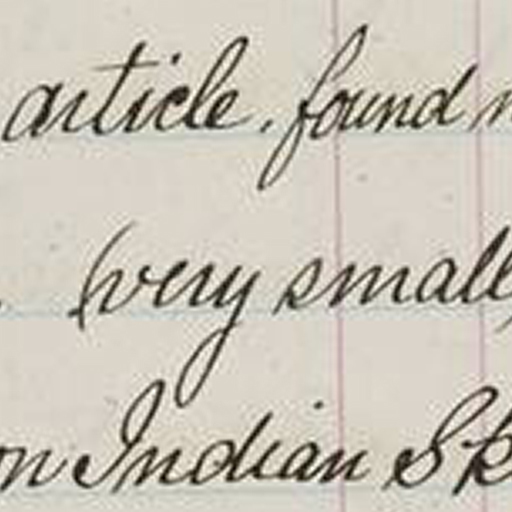 article. found
(very small
on Indian Sk